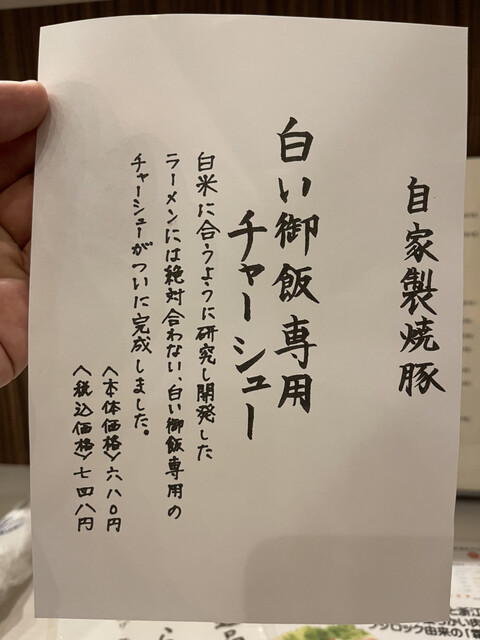 自家製焼豚
白い御飯専用
チャーシュー
白米に合うように研究し開発した
ラーメンには絶対合わない、白い御飯専用の
チャーシューがついに完成しました。
〈本体価格〉六八〇円
〈税込価格〉七四八円